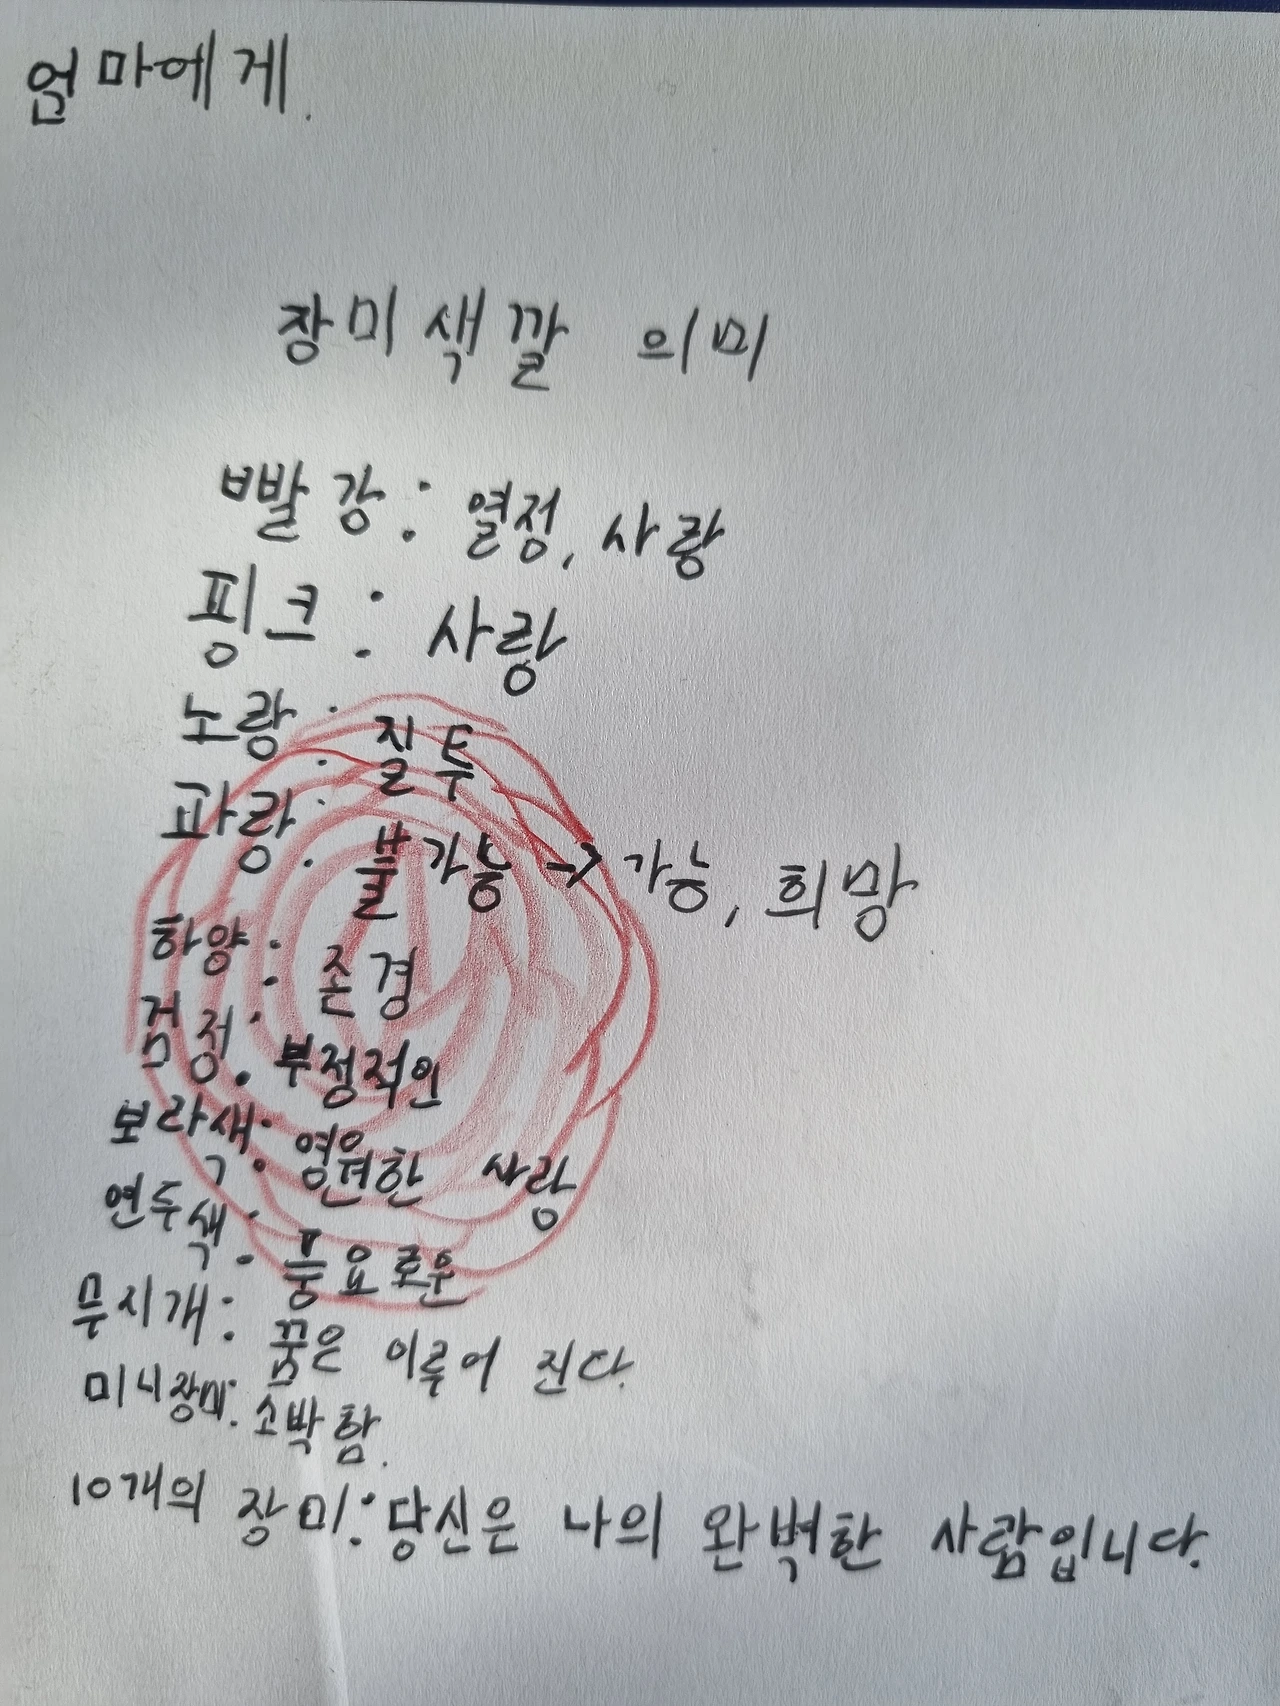 엄마에게.
장미색깔 의미
빨강: 열정, 사랑
핑크: 사랑
노랑: 질투
파랑: 불가능 → 가능, 희망
하양: 존경
검정: 부정적인
보라색: 영원한 사랑
연두색: 풍요로운
무지개: 꿈은 이루어 진다.
미니장미: 소박함.
10개의 장미: 당신은 나의 완벽한 사람입니다.